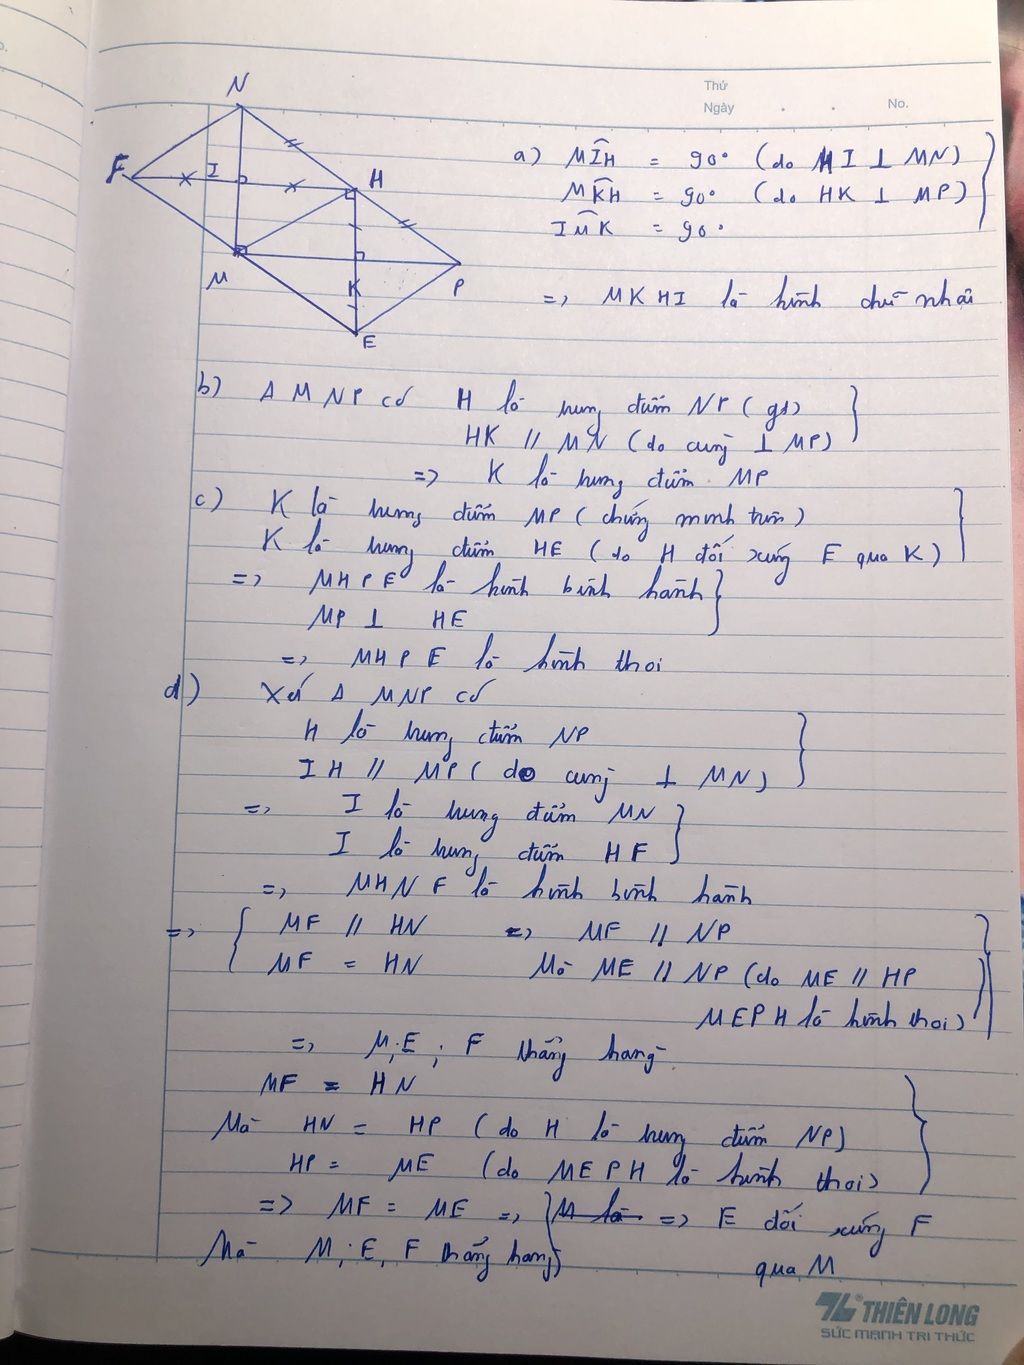 Thứ
Ngày . . No.
N
F I H
M K P
E
a) MIH = 90° (do HI ⊥ MN)
MKH = 90° (do HK ⊥ MP)
IMK = 90°
=> MKHI là hình chữ nhật
b) Δ MNP có H là trung điểm NP (gt)
HK // MN (do cùng ⊥ MP)
=> K là trung điểm MP
c) K là trung điểm MP (chứng minh trên)
K là trung điểm HE (do H đối xứng E qua K)
=> MHPE là hình bình hành
MP ⊥ HE
=> MHPE là hình thoi
d) Xét Δ MNP có
H là trung điểm NP
IH // MP (do cùng ⊥ MN)
=> I là trung điểm MN
I là trung điểm HF
=> MHNF là hình bình hành
=> { MF // HN => MF // NP
MF = HN Mà ME // NP (do ME // HP
MEPH là hình thoi)
=> M; E; F thẳng hàng
MF = HN
Mà HN = HP (do H là trung điểm NP)
HP = ME (do MEPH là hình thoi)
=> MF = ME => M là => E đối xứng F
Mà M; E, F thẳng hàng qua M
THIÊN LONG
SỨC MẠNH TRI THỨC